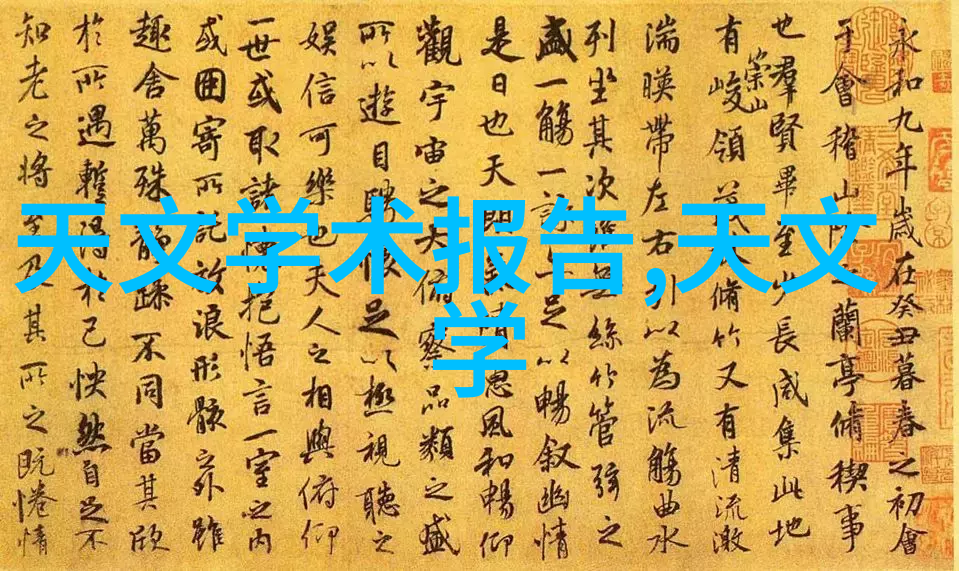 天文学术报告,天文
学
永和九年歲在癸丑暮春之初會
于會稽山陰之蘭亭脩稧事
也羣賢畢至少長咸集此地
有崇山峻領茂林脩竹又有清流激
湍暎帶左右引以為流觴曲水
列坐其次雖無絲竹管弦之
盛一觴一詠亦足以暢叙幽情
是日也天朗氣清惠風和暢仰
觀宇宙之大俯察品類之盛
所以遊目騁懷足以極視聽之
娛信可樂也夫人之相與俯仰
一世或取諸懷抱悟言一室之內
或因寄所託放浪形骸之外雖
趣舍萬殊靜躁不同當其欣
於所遇蹔得於己怏然自足不
知老之將至及其所之既惓情